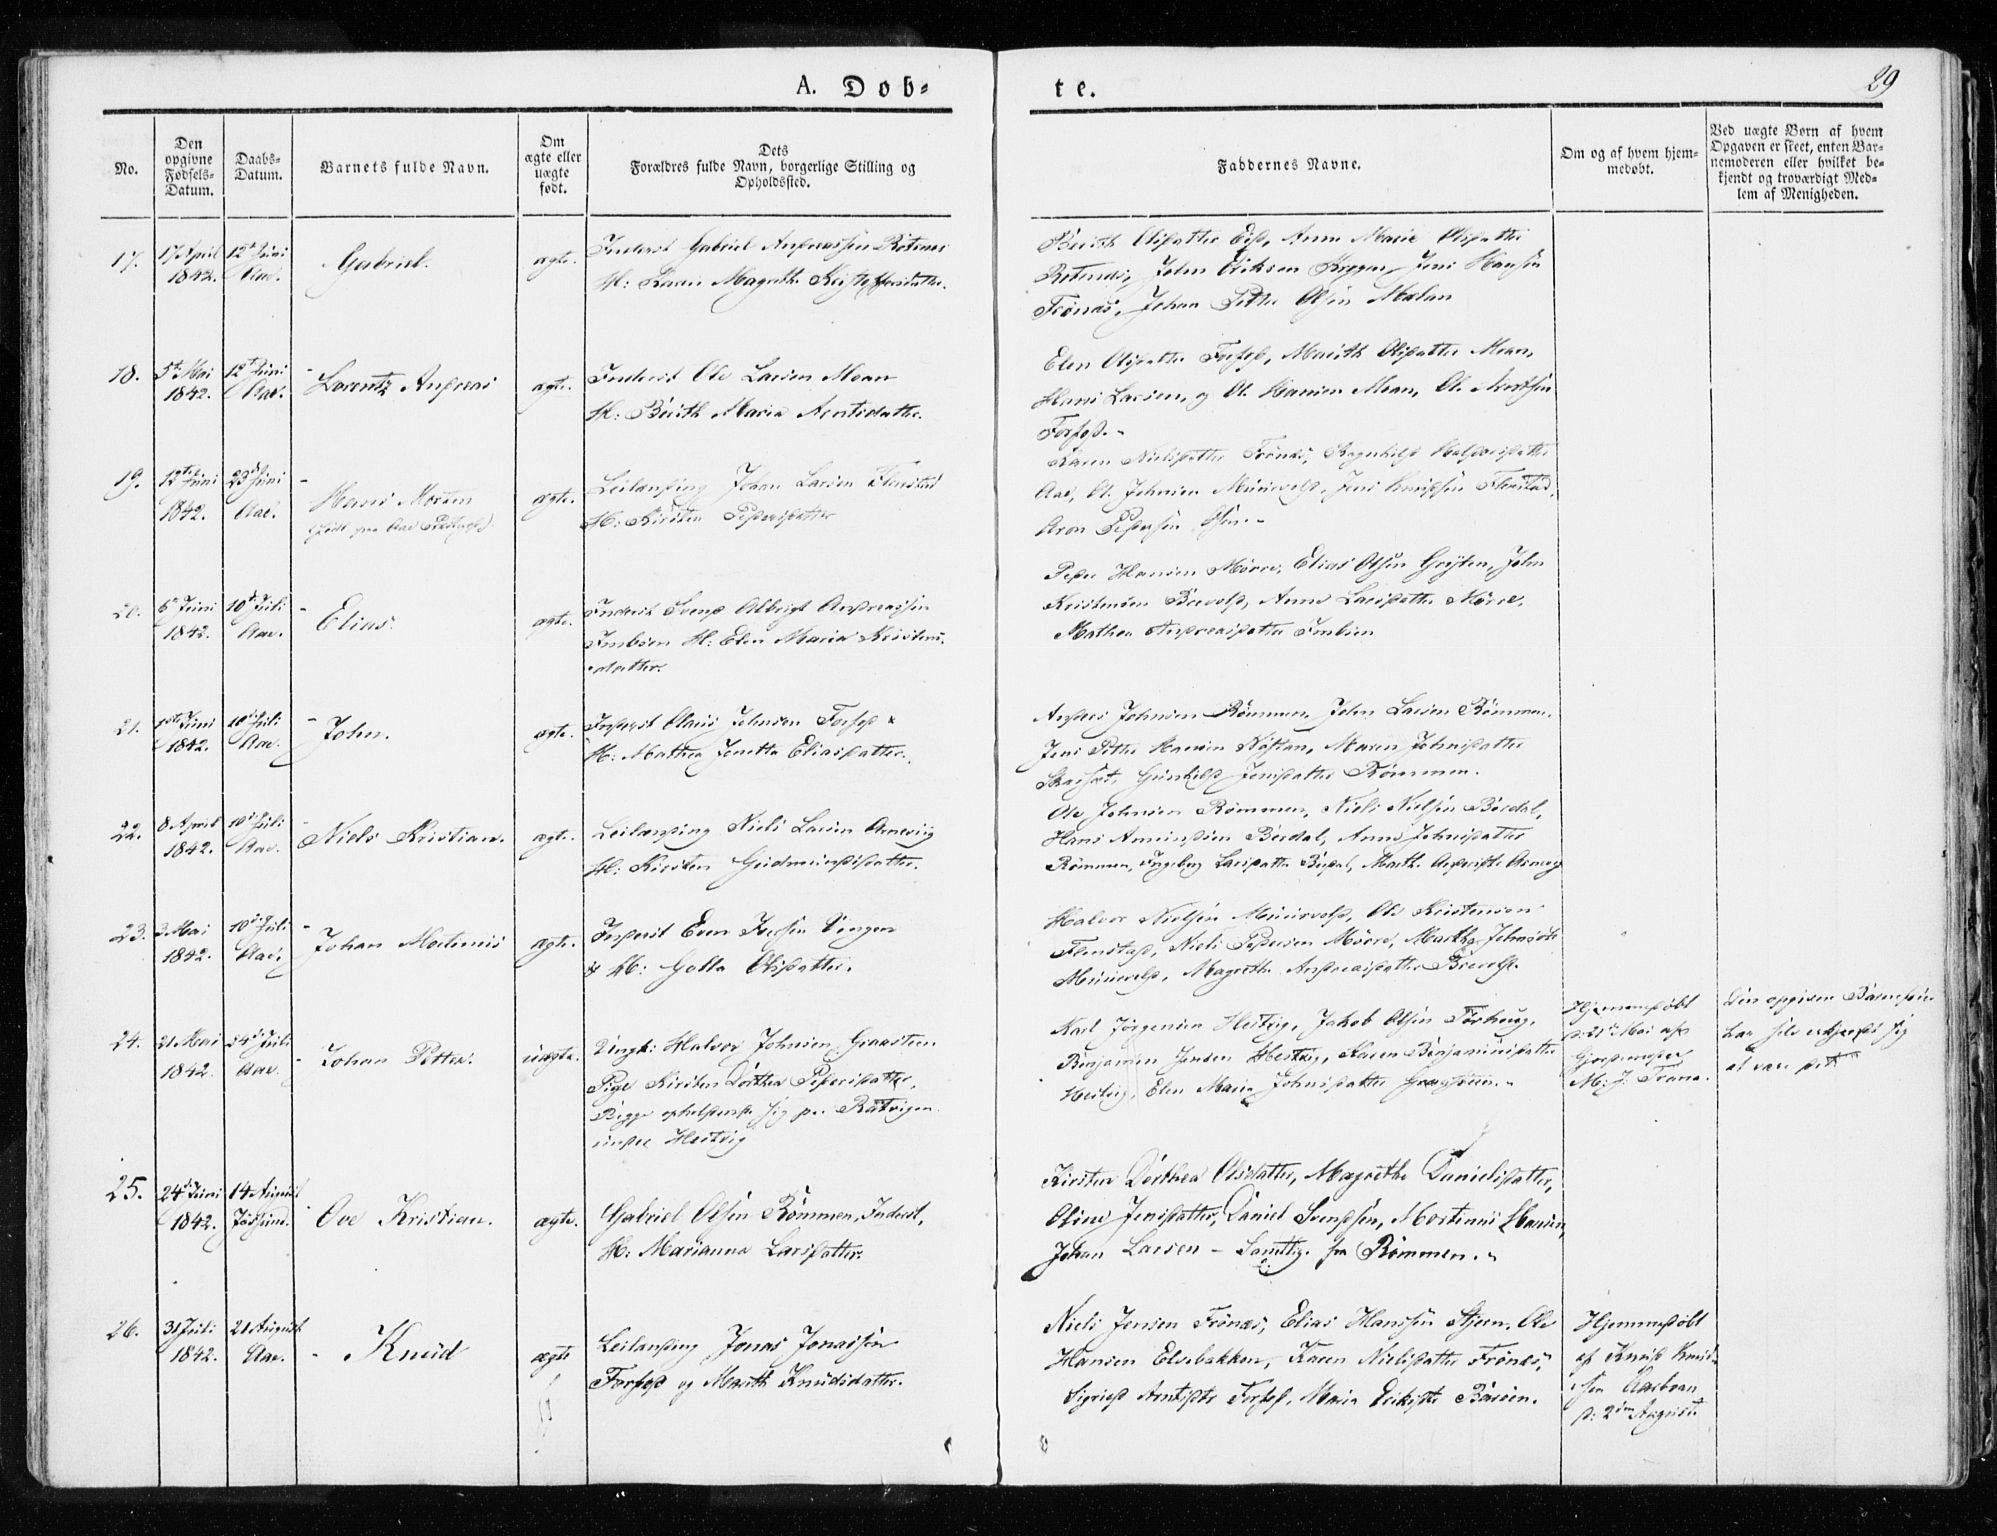 A. Døb-
te.
29
No.
Den opgivne Fødsels-Datum.
Daabs-Datum.
Barnets fulde Navn.
Om ægte eller uægte født.
Dets Forældres fulde Navn, borgerlige Stilling og Opholdssted.
Faddernes Navne.
Om og af hvem hjem-medøbt.
Ved uægte Børn af hvem Opgaven er skeet, enten Bar-nemoderen eller hvilket be-kjendt og troværdigt Med-lem af Menigheden.
17. 17 April 12te Juni
1842. Aae. Gabriel. ægte.
Inderst Gabriel Andreassen Røtnes
H: Karen Magrethe Kristoffersdatter.
Berith Olsdatter Eid, Anne Marie Olsdatter
Røtnes, John Eriksen Kregen, Jens Hansen
Frönæs, Johan Petter Olsen Malan
18. 5te Mai 12te Juni
1842. Aae. Lorentz Andreas ægte.
Inderst Ole Larsen Moan
H: Berith Maria Arntsdatter.
Elen Olsdatter Forfod, Marith Olsdatter Moan,
Hans Larsen, og Ol. Hansen Moan, Ol. Arntsen
Forfod.
19. 12te Juni 29de Juni
1842. Aae. Hans Morten ægte.
(født paa Aae Præstegd.)
Leilænding Johan Larsen Flenstad
H: Kirsten Pedersdatter
Karen Nielsdatter Frönæs, Ragnhild Halvorsdatter
Aae, Ol. Johnsen Muurvold, Jens Knudsen Flenstad,
Aron Pedersen
20. 6te Juni 10de Juli
1842. Aae. Elias. ægte.
Inderst Svend Albrigt Andreassen
Imbsen H: Elen Maria Kristens-
datter.
Peder Hansen Mörre, Elias Olsen Gryten, John
Kristensen Brevold, Anne Larsdatter Mörre,
Mathea Andreasdatter Imbsen
21. 1ste Juni 10de Juli
1842. Aae. John. ægte.
Inderst Claus Johnsen Forfod &
H: Mathea Jonetta Eliasdatter.
Anders Johnsen Römmen, John Larsen Römmen,
Jens Petter Hansen Nøstan, Maren Johnsdatter
Gunhild Jensdatter Römmen.
22. 8 April 10de Juli
1842. Aae. Niels Kristian. ægte.
Leilænding Niels Larsen Arnevig
H: Kirsten Gudmundsdatter.
Ole Johnsen Römmen, Niels Nielsen Børdal,
Hans Børdal, Anne Johnsdatter
Römmen, Ingeborg Larsdatter
23. 3 Mai 10de Juli
1842. Aae. Johan Martinus ægte.
Inderst Even Iversen Vingen
& H: Golla Olsdatter.
Halvor Nielsen Muurvold, Ole Kristensen
Flenstad, Niels Pedersen Mörre, Martha Johnsdtr
Muurvold, Magrethe Andreasdatter Brevold.
24. 21 Mai 24de Juli
1842. Aae. Johan Petter. uægte.
Ungk: Halvor Johnsen
Pige Kirsten Dorthea Pedersdatter,
Begge opholdende sig paa Ratvigen
under Hestvig
Karl Jörgensen Hestvig, Jakob Olsen
Benjamin Jensen Hestvig, Karen Benjaminsdatter
Hestvig, Elen Maria Johnsdatter
Hjemmedøbt
d: 21de Mai af
Gjordemoder
M: J: Trana.
Den opgivne Barnefader
har selv erkjendt sig
at være det
25. 24de Juni 14 August
1842. Jøssund. Ove Kristian. ægte.
Gabriel Olsen Römmen, Inderst,
H: Marianna Larsdatter.
Kirsten Dorthea Olsdatter, Magrethe Danielsdatter,
Oline Jensdatter, Daniel Svendsen, Mortinus Hansen,
Johan Larsen – Samtlige fra Römmen.
26. 31 Juli 21 August
1842. Aae. Knud ægte
Leilænding Jonas Jonassen
Forfod og Marith Knudsdatter.
Niels Jensen Frönæs, Elias Hanssen Stjern, Ole
Hansen Elvebakken, Karen Nielsdatter Frönæs,
Sigrid Arntsdtr Forfod, Maria Eriksdtr
Hjemmedøbt
af Knud Knud-
sen
d: 2den August.